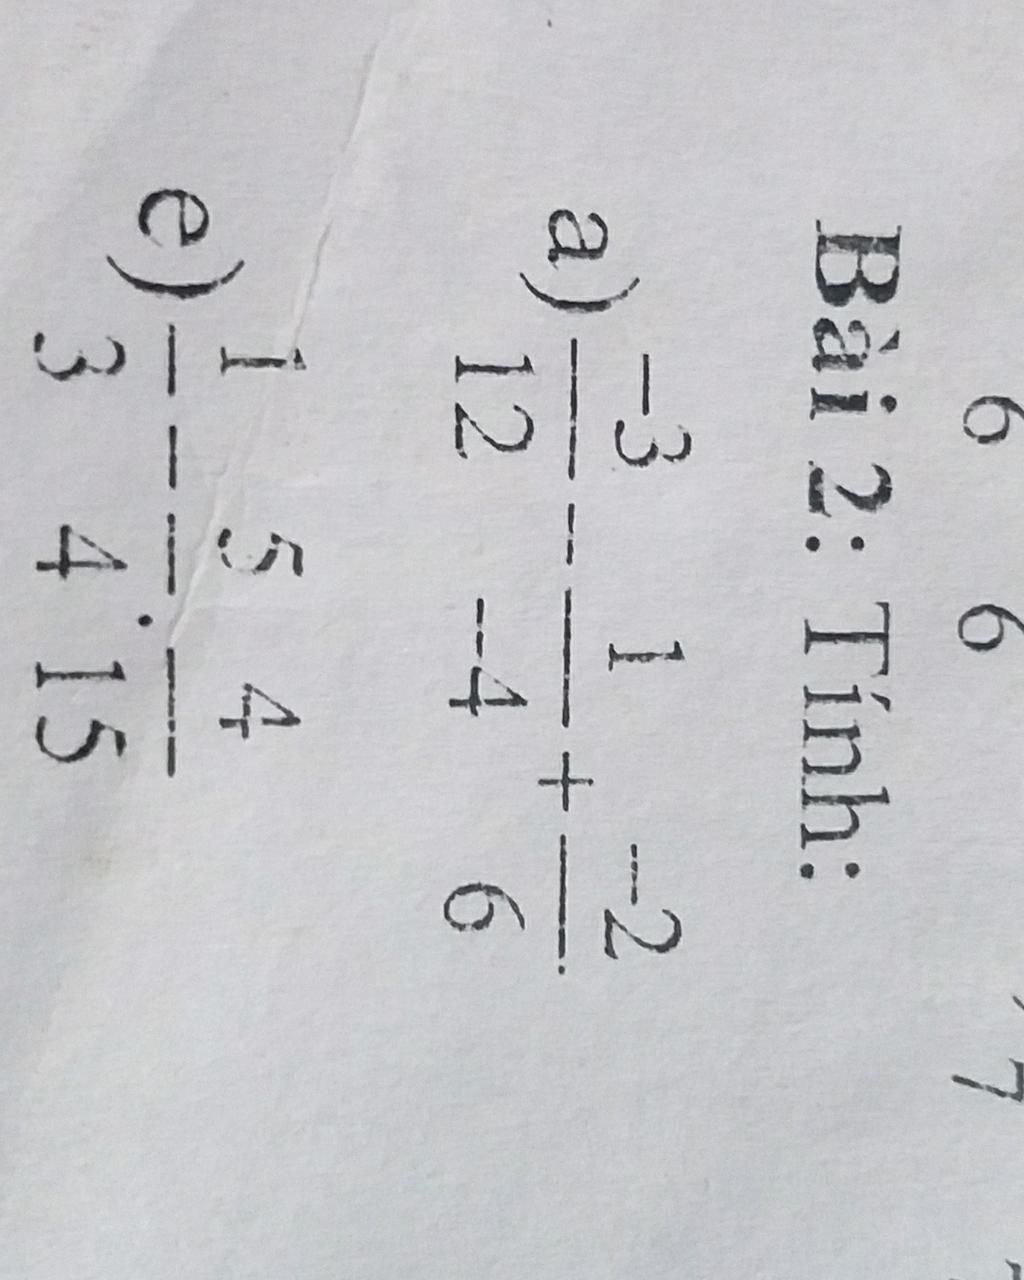 6 6 7
Bài 2: Tính:
a) −3/12 − 1/−4 + −2/6.
e) 1/3 − 5/4 . 4/15